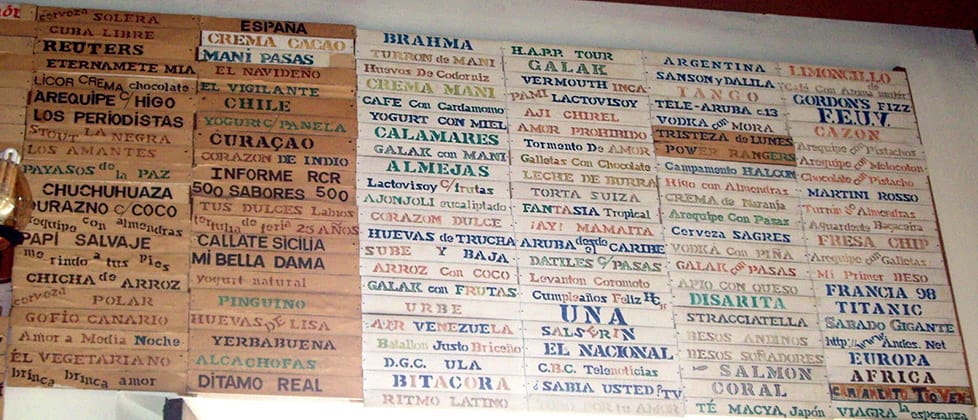 cerveza SOLERA
CUBA LIBRE
REUTERS
ETERNAMETE MIA
LICOR CREMA chocolate
AREQUIPE C/ HIGO
LOS PERIODISTAS
STOUT LA NEGRA
LOS AMANTES
PAYASOS de la PAZ
CHUCHUHUAZA
DURAZNO C/ COCO
arequipe con almendras
PAPÍ SALVAJE
me rindo a tus Pies
CHICHA de ARROZ
cerveza POLAR
GOFIO CANARIO
Amor a Media Noche
EL VEGETARIANO
brinca brinca amor
ESPAÑA
CREMA CACAO
MANÍ PASAS
EL NAVIDEÑO
EL VIGILANTE
CHILE
YOGURT C/ PANELA
CURAÇAO
CORAZON DE INDIO
INFORME RCR
500 SABORES 500
TUS DULCES Labios
tertulia de feria 25 AÑOS
CALLATE SICILIA
MI BELLA DAMA
yogurt natural
PINGUINO
HUEVAS DE LISA
YERBABUENA
ALCACHOFAS
DITAMO REAL
BRAHMA
TURRON de MANI
Huevos De Codorniz
CREMA MANI
CAFE Con Cardamomo
YOGURT CON MIEL
CALAMARES
GALAK con MANI
ALMEJAS
Lactovisoy C/ frutas
AJONJOLI eucaliptado
CORAZON DULCE
HUEVAS de TRUCHA
SUBE Y BAJA
ARROZ Con COCO
GALAK con FRUTAS
URBE
AIR VENEZUELA
Batallon Justo Briceño
D.G.C. ULA
BITACORA
RITMO LATINO
H.A.P.P. TOUR
GALAK
VERMOUTH INCA
PAMI LACTOVISOY
AJI CHIREL
AMOR PROHIBIDO
Tormento De AMOR
Galletas Con Chocolate
LECHE DE BURRA
TORTA SUIZA
FANTASIA Tropical
¡AY! MAMAITA
ARUBA desde el CARIBE
DATILES C/ PASAS
Levanton Coromoto
Cumpleaños Feliz
UNA
SALSERIN
EL NACIONAL
C.B.C. Telenoticias
¿SABIA USTED? TV
TODO POR tu AMOR
ARGENTINA
SANSON y DALILA
TANGO
TELE-ARUBA c13
VODKA con MORA
TRISTEZA de LUNES
POWER RANGERS
Campamento HALCON
Higo con Almendras
CREMA de Naranja
Arequipe Con Pasas
Cerveza SAGRES
VODKA con PIÑA
GALAK con PASAS
APIO CON QUESO
DISARITA
STRACCIATELLA
BESOS ANDINOS
BESOS SOÑADORES
SALMON
CORAL
TÉ MACYA, Japón
LIMONCILLO
Café Con Aroma de mujer
GORDON'S FIZZ
F.E.U.V.
CAZON
Arequipe con Pistachos
Arequipe con Melocoton
Chocolate con Pistacho
MARTINI ROSSO
Turron de Almendras
Aguardente Bagaceira
FRESA CHIP
Arequipe con Galletas
Mi Primer BESO
FRANCIA 98
TITANIC
SABADO GIGANTE
http://www Andes. Net
EUROPA
AFRICA
CAMPAMENTO
VIAGRA esperanza